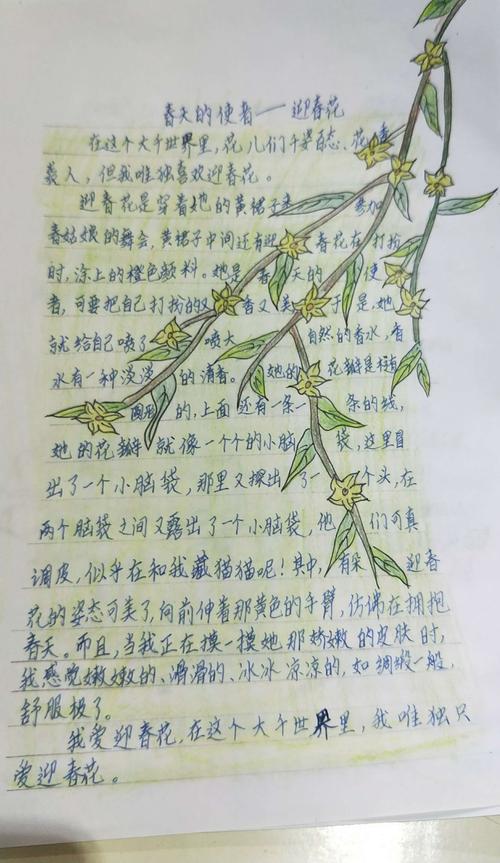 春天的使者——迎春花
在这个大千世界里，花儿们千姿百态、花
美人，但我唯独喜欢迎春花。
迎春花是穿着她的黄裙子来参加
春姑娘的舞会，黄裙子中间还有迎春花在打扮
时，涂上的橙色颜料。她是春天的使
者，可要把自己打扮的又香又美于是，她
就给自己喷了喷大自然的香水，香
水有一种淡淡的清香。她的花瓣是
圆形的，上面还有一条一条的线，
她的花瓣就像一个个的小脑袋，这里冒
出了一个小脑袋，那里又探出了一个头，在
两个脑袋之间又露出了一个小脑袋，他们可真
调皮，似乎在和我藏猫猫呢！其中，有朵迎春
花的姿态可美了，向前伸着那黄色的手臂，仿佛在拥抱
春天。而且，当我正在摸一摸她那娇嫩的皮肤时，
我感觉嫩嫩的、滑滑的、冰冰凉凉的，如绸缎一般，
舒服极了。
我爱迎春花，在这个大千世界里，我唯独只
爱迎春花。